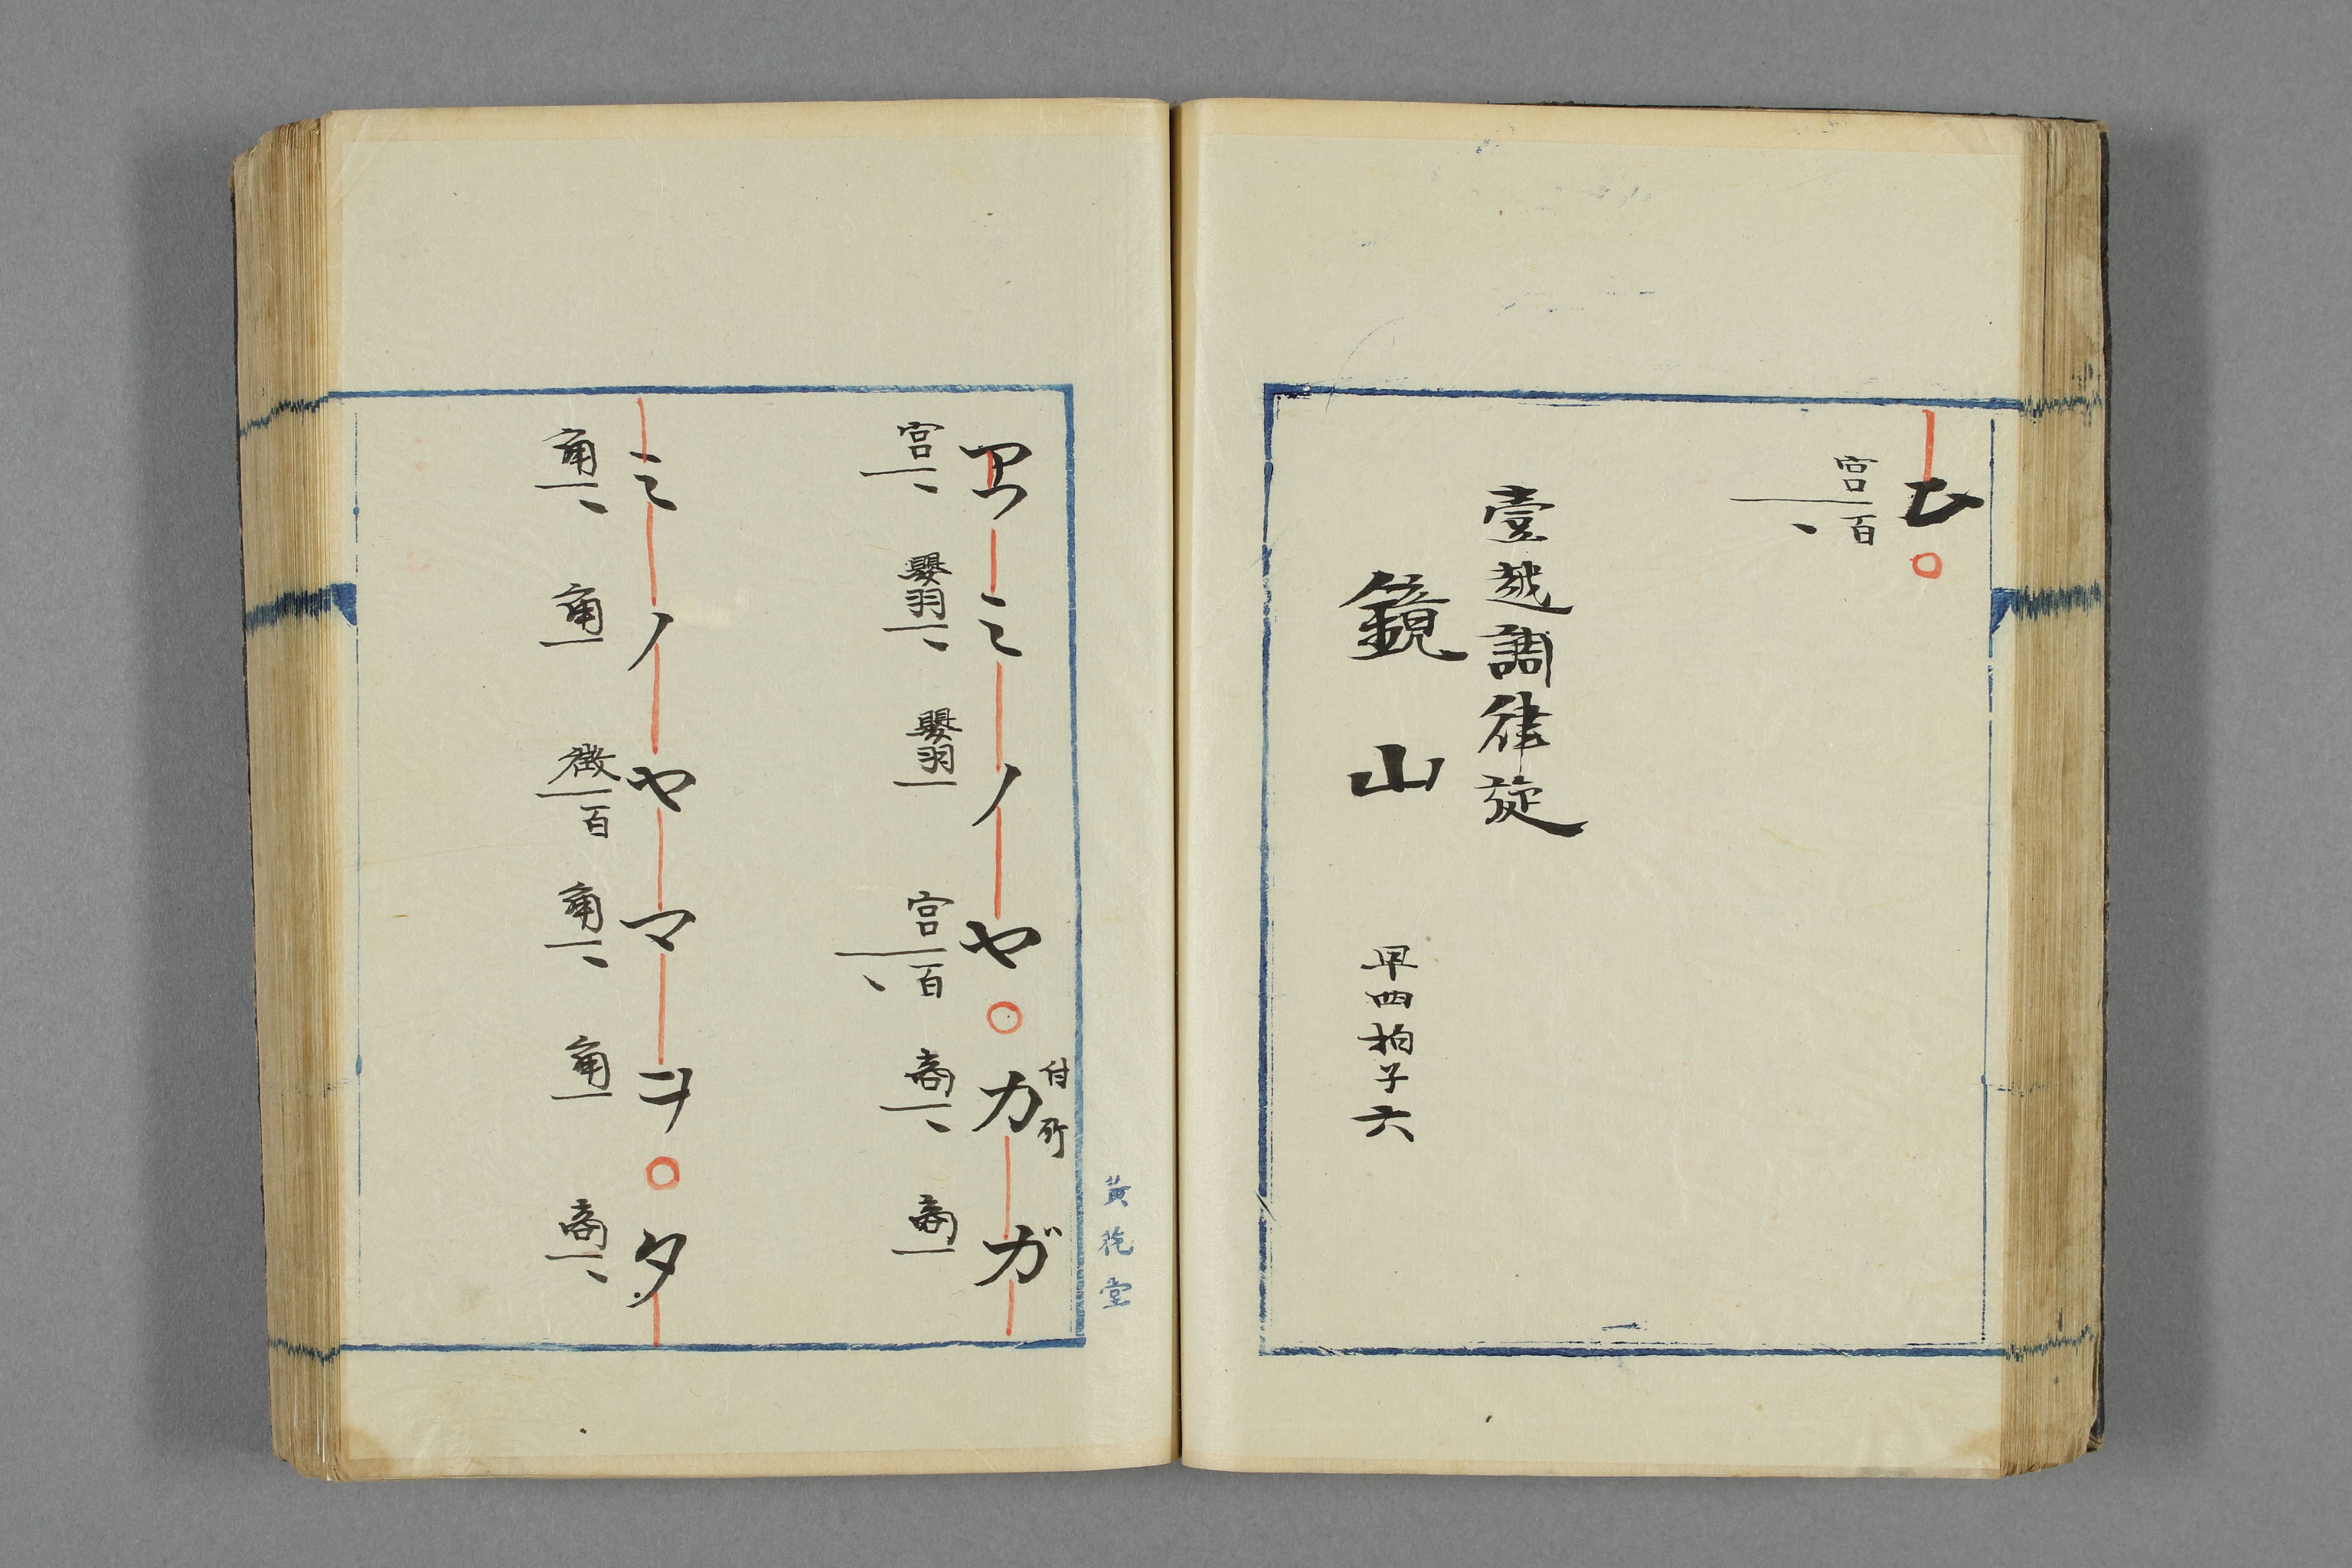 ヒ
宮百
壹越調律旋
鏡山 早四拍子六
付所
アフミノヤ○カガ
宮 嬰羽 嬰羽 宮百 商 商
ミノヤマヲ○タ
角 角 徴百 角 角 商